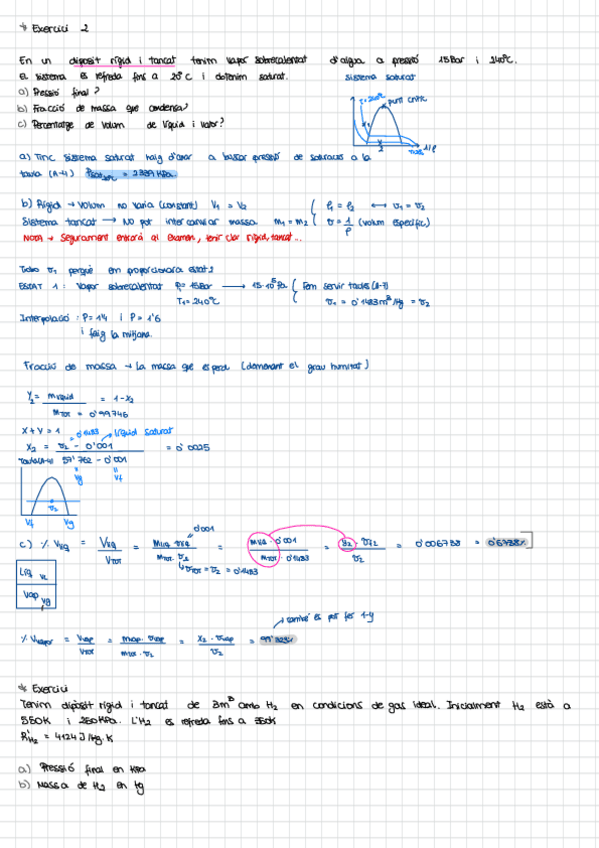 * Exercici 2
En un dipòsit rígid i tancat tenim vapor sobrecalentat d'aigua a pressió 15Bar i 240ºC.
El sistema es refreda fins a 20ºC i obtenim saturat.
sistema saturat
a) Pressió final?
b) Fracció de massa que condensa?
c) Percentatge de volum de líquid i vapor?
T=240ºC
punt crític
a) Tinc sistema saturat haig d'anar a buscar pressió de saturació a la
taula (A-4) Psat20ºC = 2'339 KPa.
b) Rígid → volum no varia (constant) V1 = V2
Sistema tancat → No pot intercanviar massa m1 = m2
ρ1 = ρ2 ⟷ v1 = v2
v = 1/ρ (volum específic)
NOTA → Segurament entrarà al examen, tenir clar rígid, tancat...
Trobo v1 perquè em proporcionarà estat 2
ESTAT 1: Vapor sobrecalentat P1 = 15Bar → 15·10^5 Pa
T1 = 240ºC
Fem servir taules (A-7)
v1 = 0'1483 m³/Kg = v2
Interpolació: P=1'4 i P=1'6
i faig la mitjana.
Fracció de massa → La massa que es perd (demanant el grau humitat)
Y2 = m líquid / mTOT = 1-x2
= 0'99746
x+y = 1
= 0'1483
líquid saturat
x2 = (v2 - 0'001) / (57'762 - 0'001) = 0'0025
Taula(A-4)
vg
vf
v2
vf vg
c) % VLíq = VLíq / VTOT = mLíq · vLíq / mTOT · v2 = mLíq · 0'001 / mTOT · 0'1483 = y2 · vf2 / v2 = 0'006738 = 0'6738%
0'001
vTOT = v2 = 0'1483
Líq vL
Vap vg
també es pot fer 1-y
% Vvapor = Vvap / VTOT = mvap · vvap / mTOT · v2 = x2 · vvap / v2 =
* Exercici
Tenim dipòsit rígid i tancat de 3m³ amb H2 en condicions de gas ideal. Inicialment H2 està a
550K i 250KPa. L'H2 es refreda fins a 350K
R'H2 = 4124 J/Kg·K
a) Pressió final en KPa
b) Massa de H2 en Kg